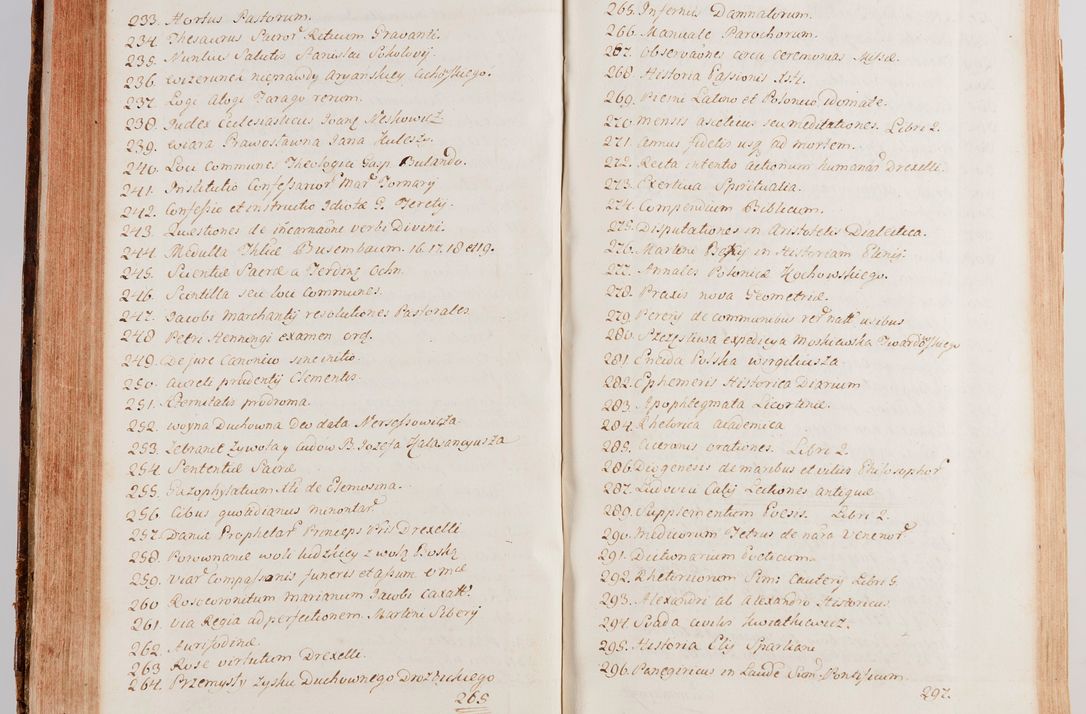 233. Hortus Pastorum.
234. Thesaurus Sacror. Rituum Gravanti.
235. Nuntius Salutis Stanislai Sokolovij
236. Wizerunek nieprawdy Aryanskiey Cichoskiego.
237. Logi Alogi Farago rerum.
238. Judex Ecclesiasticus Joan. Meskowicz
239. Wiara Prawosławna Jana Kuleszy.
240. Loci Communes Theologici Gasp.
241. Institutio Confessarior. Mar. Fornarij
242. Confessio et instructio Idiotæ G. Terety.
243. Quæstiones de incarnaõne verbi Divini.
244. Medulla Thliæ Busembaum. 16. 17. 18 et 19.
245. Scientiæ Sacræ a Ferdin. Ochn.
246. Scintilla seu loci communes.
247. Jacobi Marchantij resolutiones Pastorales
248 Petri Hennengi examen ord.
249. De jure Canonico sine initio.
250. Aureli prudentij Clementis.
251. Æternitatis prodroma.
252. Woyna Duchowna Deo data Nersessowicza
253. Zebranie Zywota y Cudów B. Jozefa Kalasancyusza
254. Sententiæ Sacræ
255. Gazophylatium Xti de Elemosina.
256. Cibus quotidianus minoritar.
257. Daniel Prophetar. Princeps
258. Porownanie woli ludzkiey z wolą Boską
259. Viar. Compassionis funeris et
260 Rosocoronitum Marianum Jacobi
261. Via Regia ad perfectionem. Marteni Siberij
262. Aurifodinæ.
263 Rosæ virtutum Drexelli.
264. Przemysły Zysku Duchownego Drozbickiego
265
265. Infernus Damnatorum.
266. Manuale Parochorum.
267. Observaõnes circa Ceremonias Missæ.
268. Historia Passionis Xsti.
269. Piesni Latino et Polonico idiomate.
270. Mensis asceticus seu meditationes. Libri 2.
271. Annus fidelis usq. ad mortem.
272. Recta intentio Actionum humanar. Drexelli.
273. Exercitia Spiritualia.
274. Compendium Biblicum.
275. Disputationes in Aristotelis Dialectica.
276. Marteni in Historiam
277. Annales Polonicæ Kochowskiego.
278. Praxis nova Geometriæ.
279. Pererij de communibus rer. natt. usibus
280. Szczęśliwa expedycya Moskiewska Twardoskiego
281. Eneida Polska wirgiliusza
282. Ephemeris Historica Diarium
283. Apophtegmata Licortinæ.
284. Rhetorica academica
285. Ciceronis orationes. Libri 2.
286. Diogenesis de moribus et vitiis Philosophor.
287. Ludovici Celij Lectiones antiquæ
289. Supplementum Poesis. Libri 2.
290. Medicorum Petrus de natura Venenor.
291. Dictionarium Poeticum.
292. Rhetoricorum Sim: Cauterij Libri 5
293. Alexandri ab Alexandro Historicus
294 Swada Civilis Kwiatkiewicz.
295. Historia Elij Spartiani
296. Panegiricus in Laude Sum. Pontificum.
297.